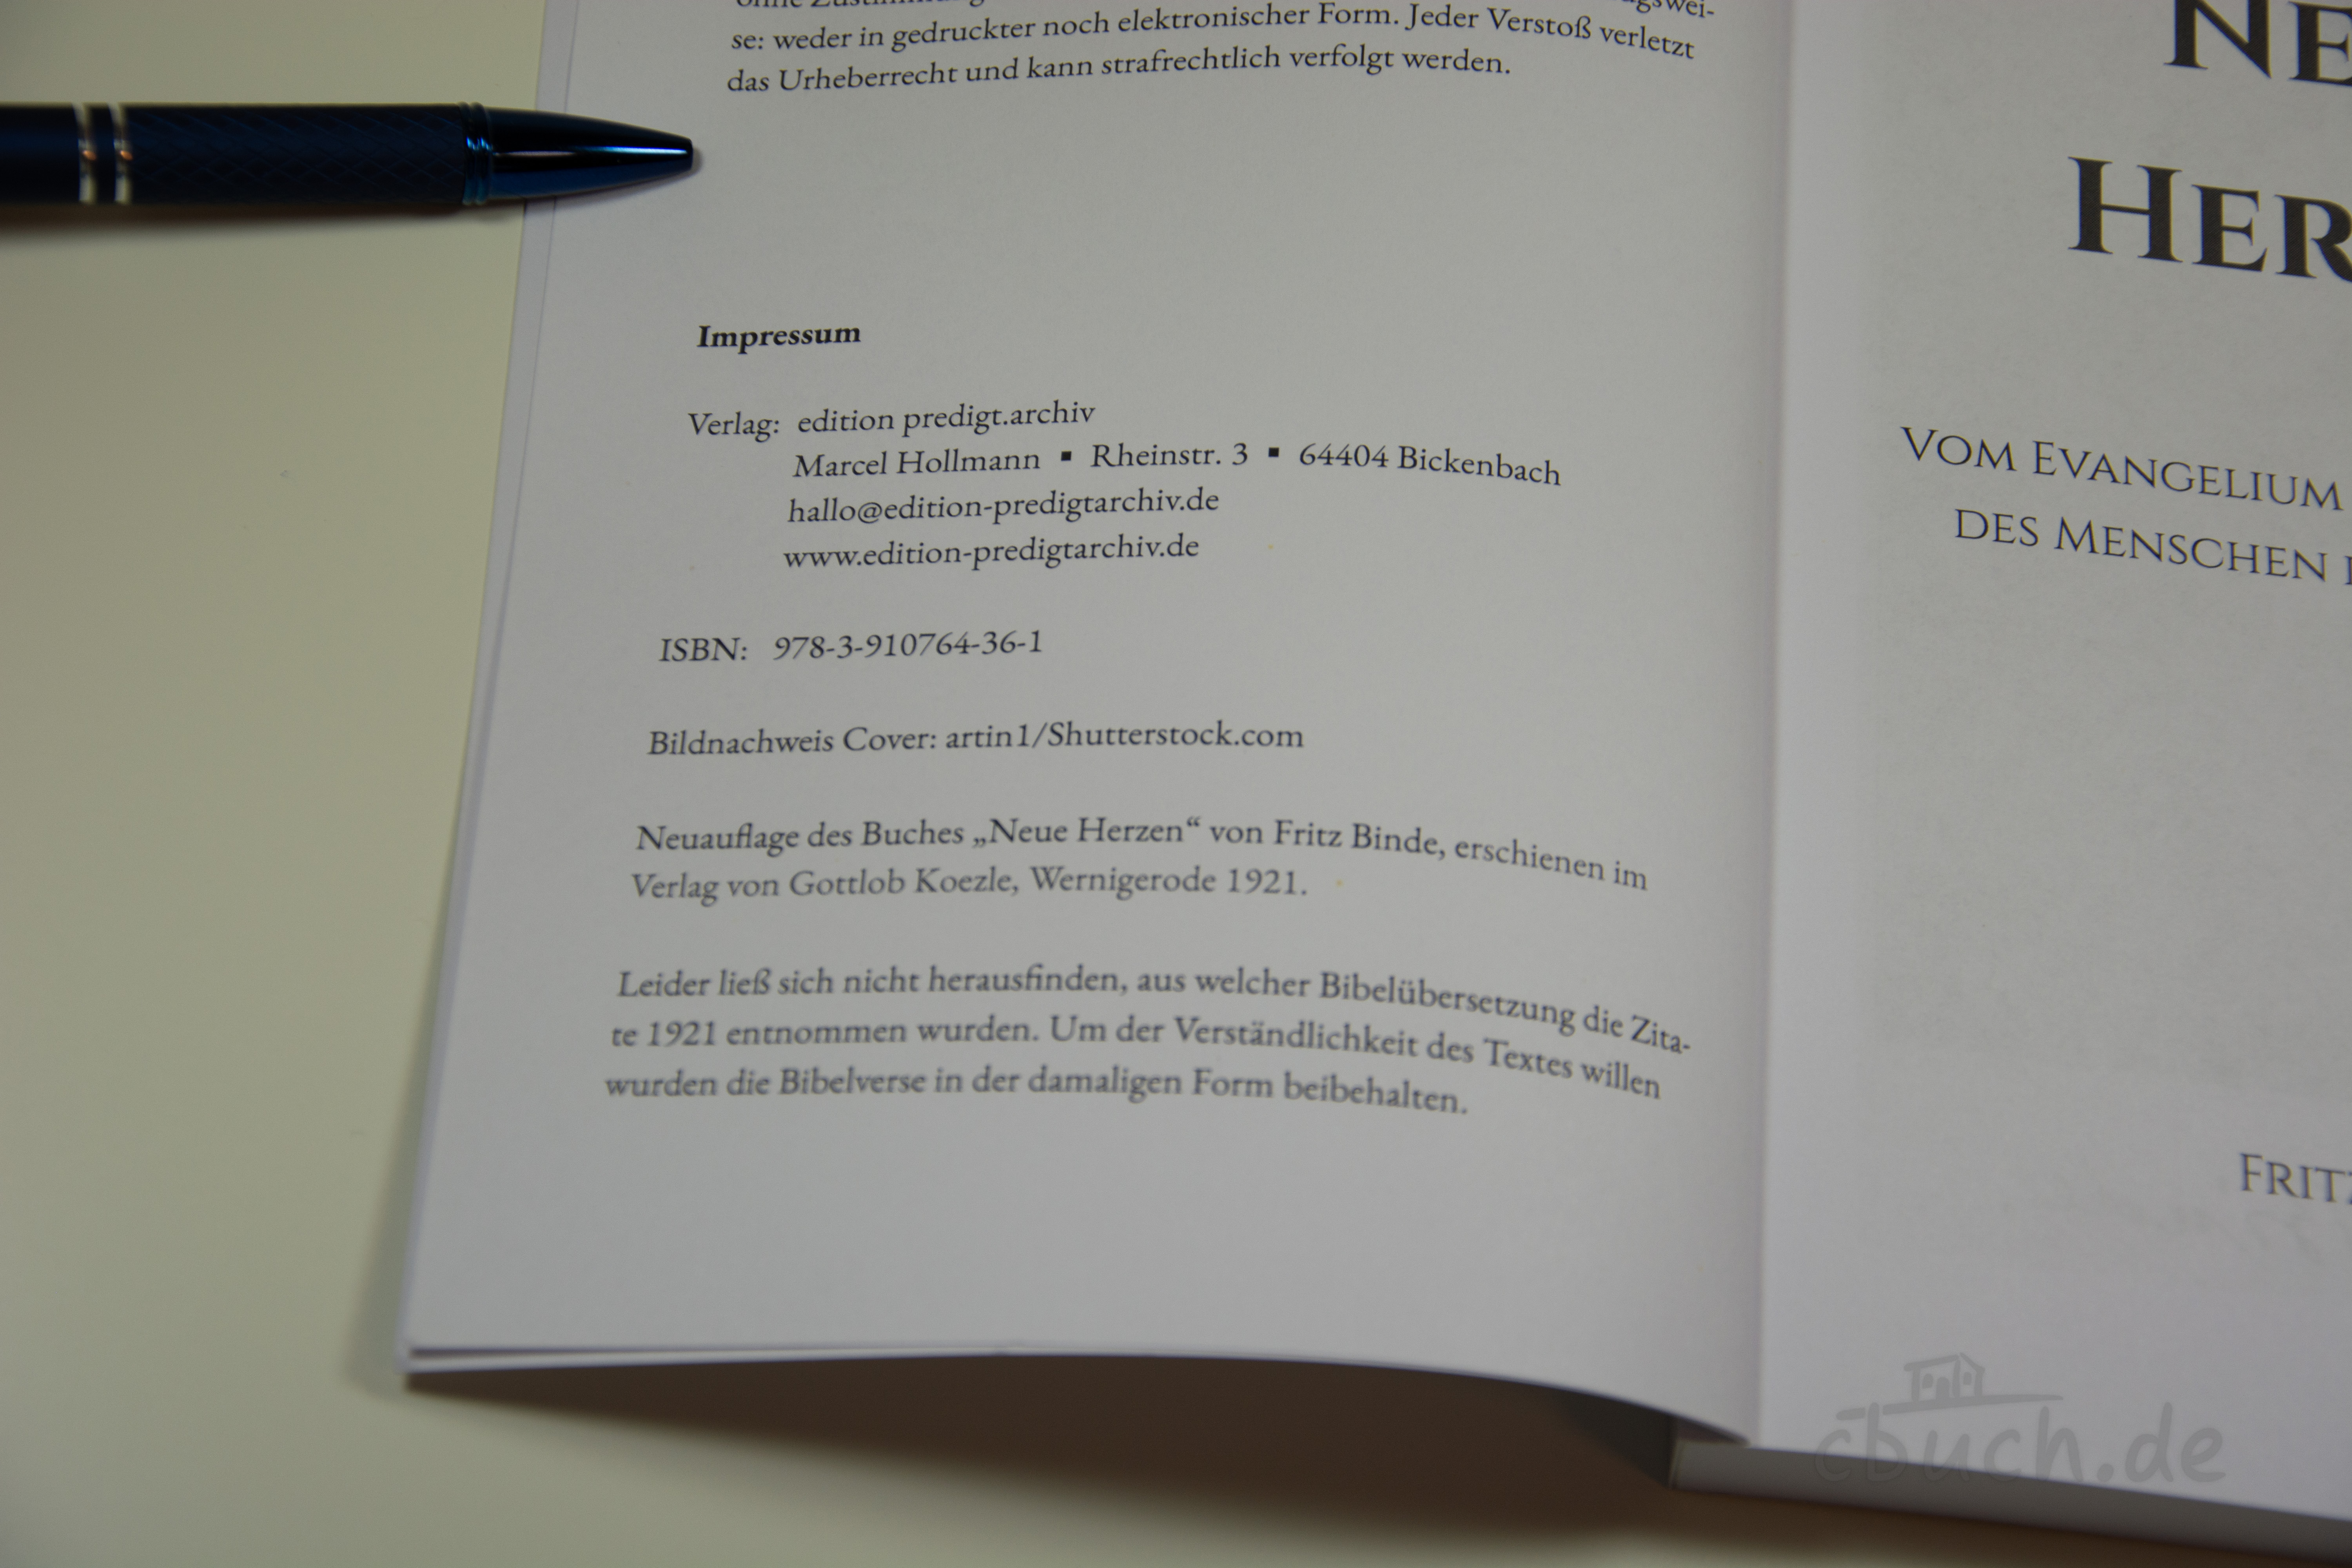 se: weder in gedruckter noch elektronischer Form. Jeder Verstoß verletzt
das Urheberrecht und kann strafrechtlich verfolgt werden.
Impressum
Verlag: edition predigt.archiv
Marcel Hollmann ▪ Rheinstr. 3 ▪ 64404 Bickenbach
hallo@edition-predigtarchiv.de
www.edition-predigtarchiv.de
ISBN: 978-3-910764-36-1
Bildnachweis Cover: artin1/Shutterstock.com
Neuauflage des Buches „Neue Herzen“ von Fritz Binde, erschienen im
Verlag von Gottlob Koezle, Wernigerode 1921.
Leider ließ sich nicht herausfinden, aus welcher Bibelübersetzung die Zita-
te 1921 entnommen wurden. Um der Verständlichkeit des Textes willen
wurden die Bibelverse in der damaligen Form beibehalten.
NE
HER
VOM EVANGELIUM
DES MENSCHEN
FRITZ
cbuch.de